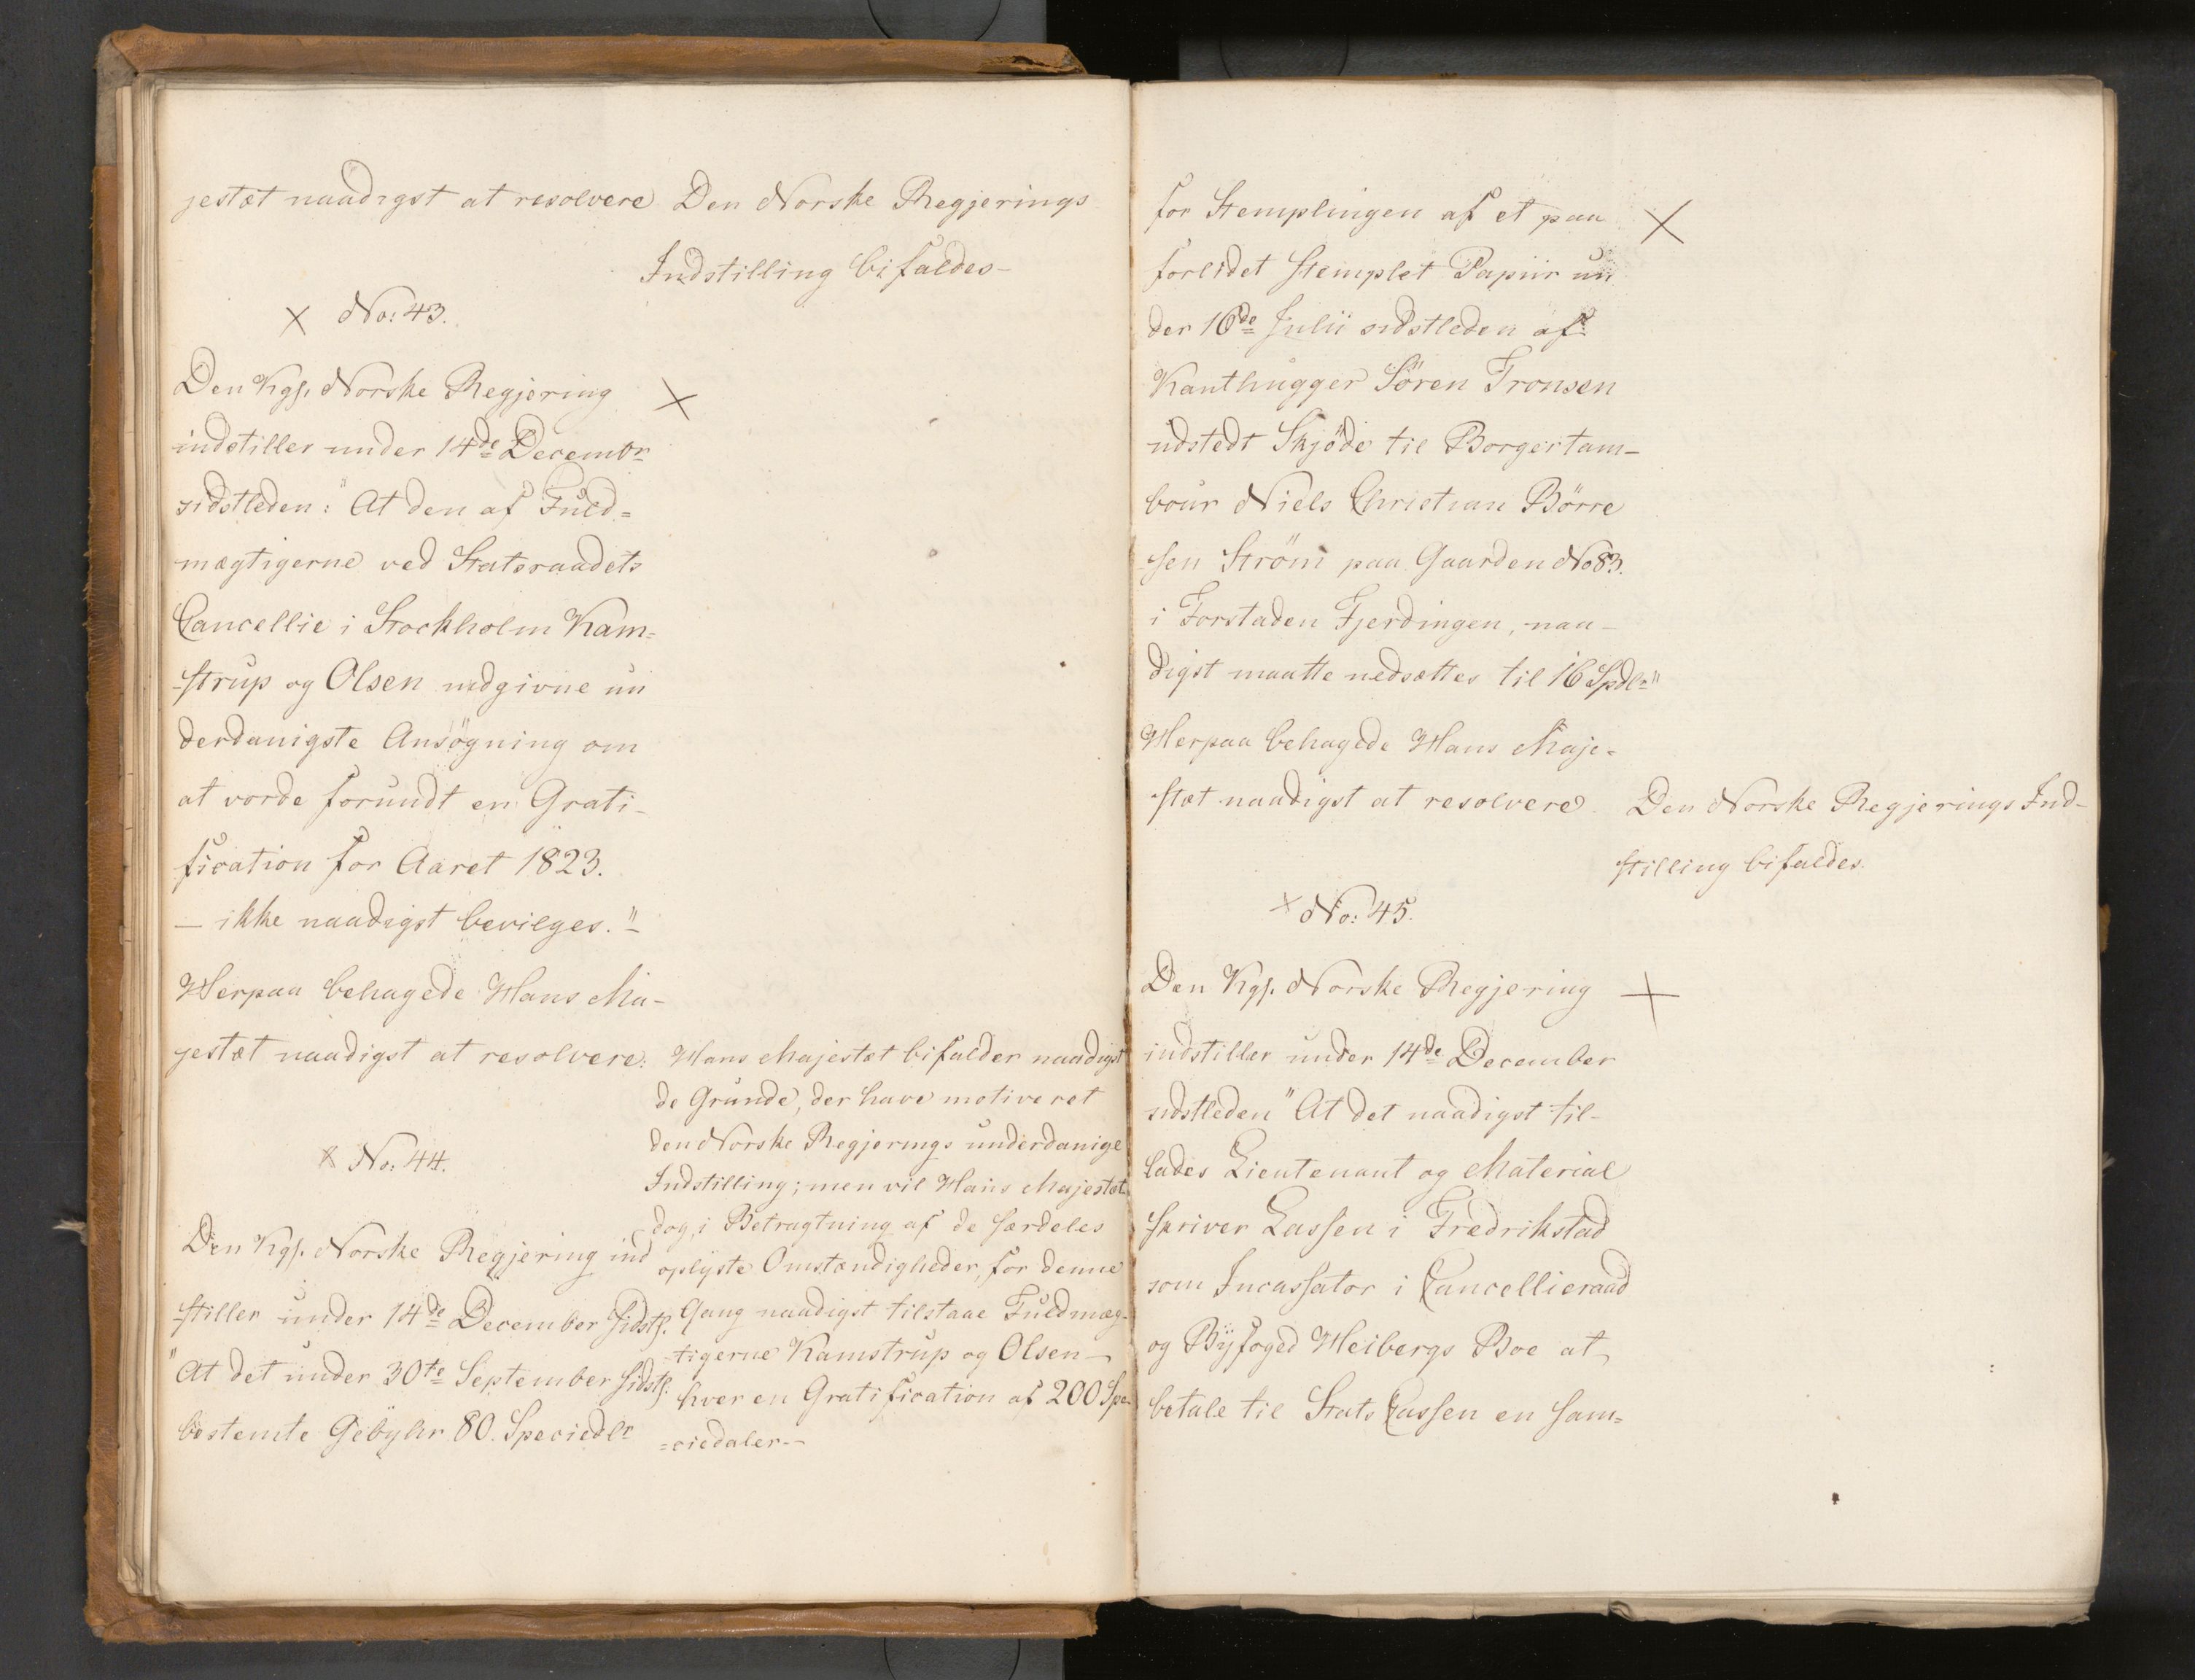 jestæt naadigst at resolvere
Den Norske Regjerings
Indstilling bifaldes-
X No: 43.
Den Kgl. Norske Regjering
X
indstiller under 14de Decembr
sidstleden: "At den af Fuld=
mægtigerne ved Statsraadets
Cancellie i Stockholm Kam=
strup og Olsen indgivne un
derdanigste Ansögning om
at vorde forundt en Grati-
fication for Aaret 1823.
- ikke naadigst bevilges."
Herpaa behagede Hans Ma-
jestæt naadigst at resolvere:
Hans Majestæt bifalder naadigst
de Grunde, der have motiveret
den Norske Regjerings underdanige
Indstilling; men vil Hans Majestæt
dog, i Betragtning af de særdeles
oplyste Omstændigheder, for denne
Gang naadigst tilstaae Fuldmæg-
-tigerne Kamstrup og Olsen-
hver en Gratification af 200 Spe-
=ciedaler.-
X No: 44.
Den Kgl. Norske Regjering ind
stiller under 14de December sidstl.
"At det under 30te September sidstl.
bestemte Gebyhr 80. Speciedlr
for Stemplingen af et paa
X
forlidet Stemplet Papiir un
der 16de Julii sidstleden af
Kanthugger Sören Tronsen
udstedt Skjöde til Borgertam-
bour Niels Christian Börre
sen Ström paa Gaarden No 83.
i Forstaden Fjerdingen, naa-
digst maatte nedsættes til 16 Spdlr"
Herpaa behagede Hans Maje=
stæt naadigst at resolvere
Den Norske Regjerings Ind-
stilling bifaldes.
X No: 45.
Den Kgl. Norske Regjering
X
indstiller under 14de December
sidstleden "At det naadigst til-
lades Lieutenant og Material
skriver Lassen i Fredrikstad
som Incassator i Cancellieraad
og Byfoged Heibergs Boe at
betale til Stats Cassen en sam=